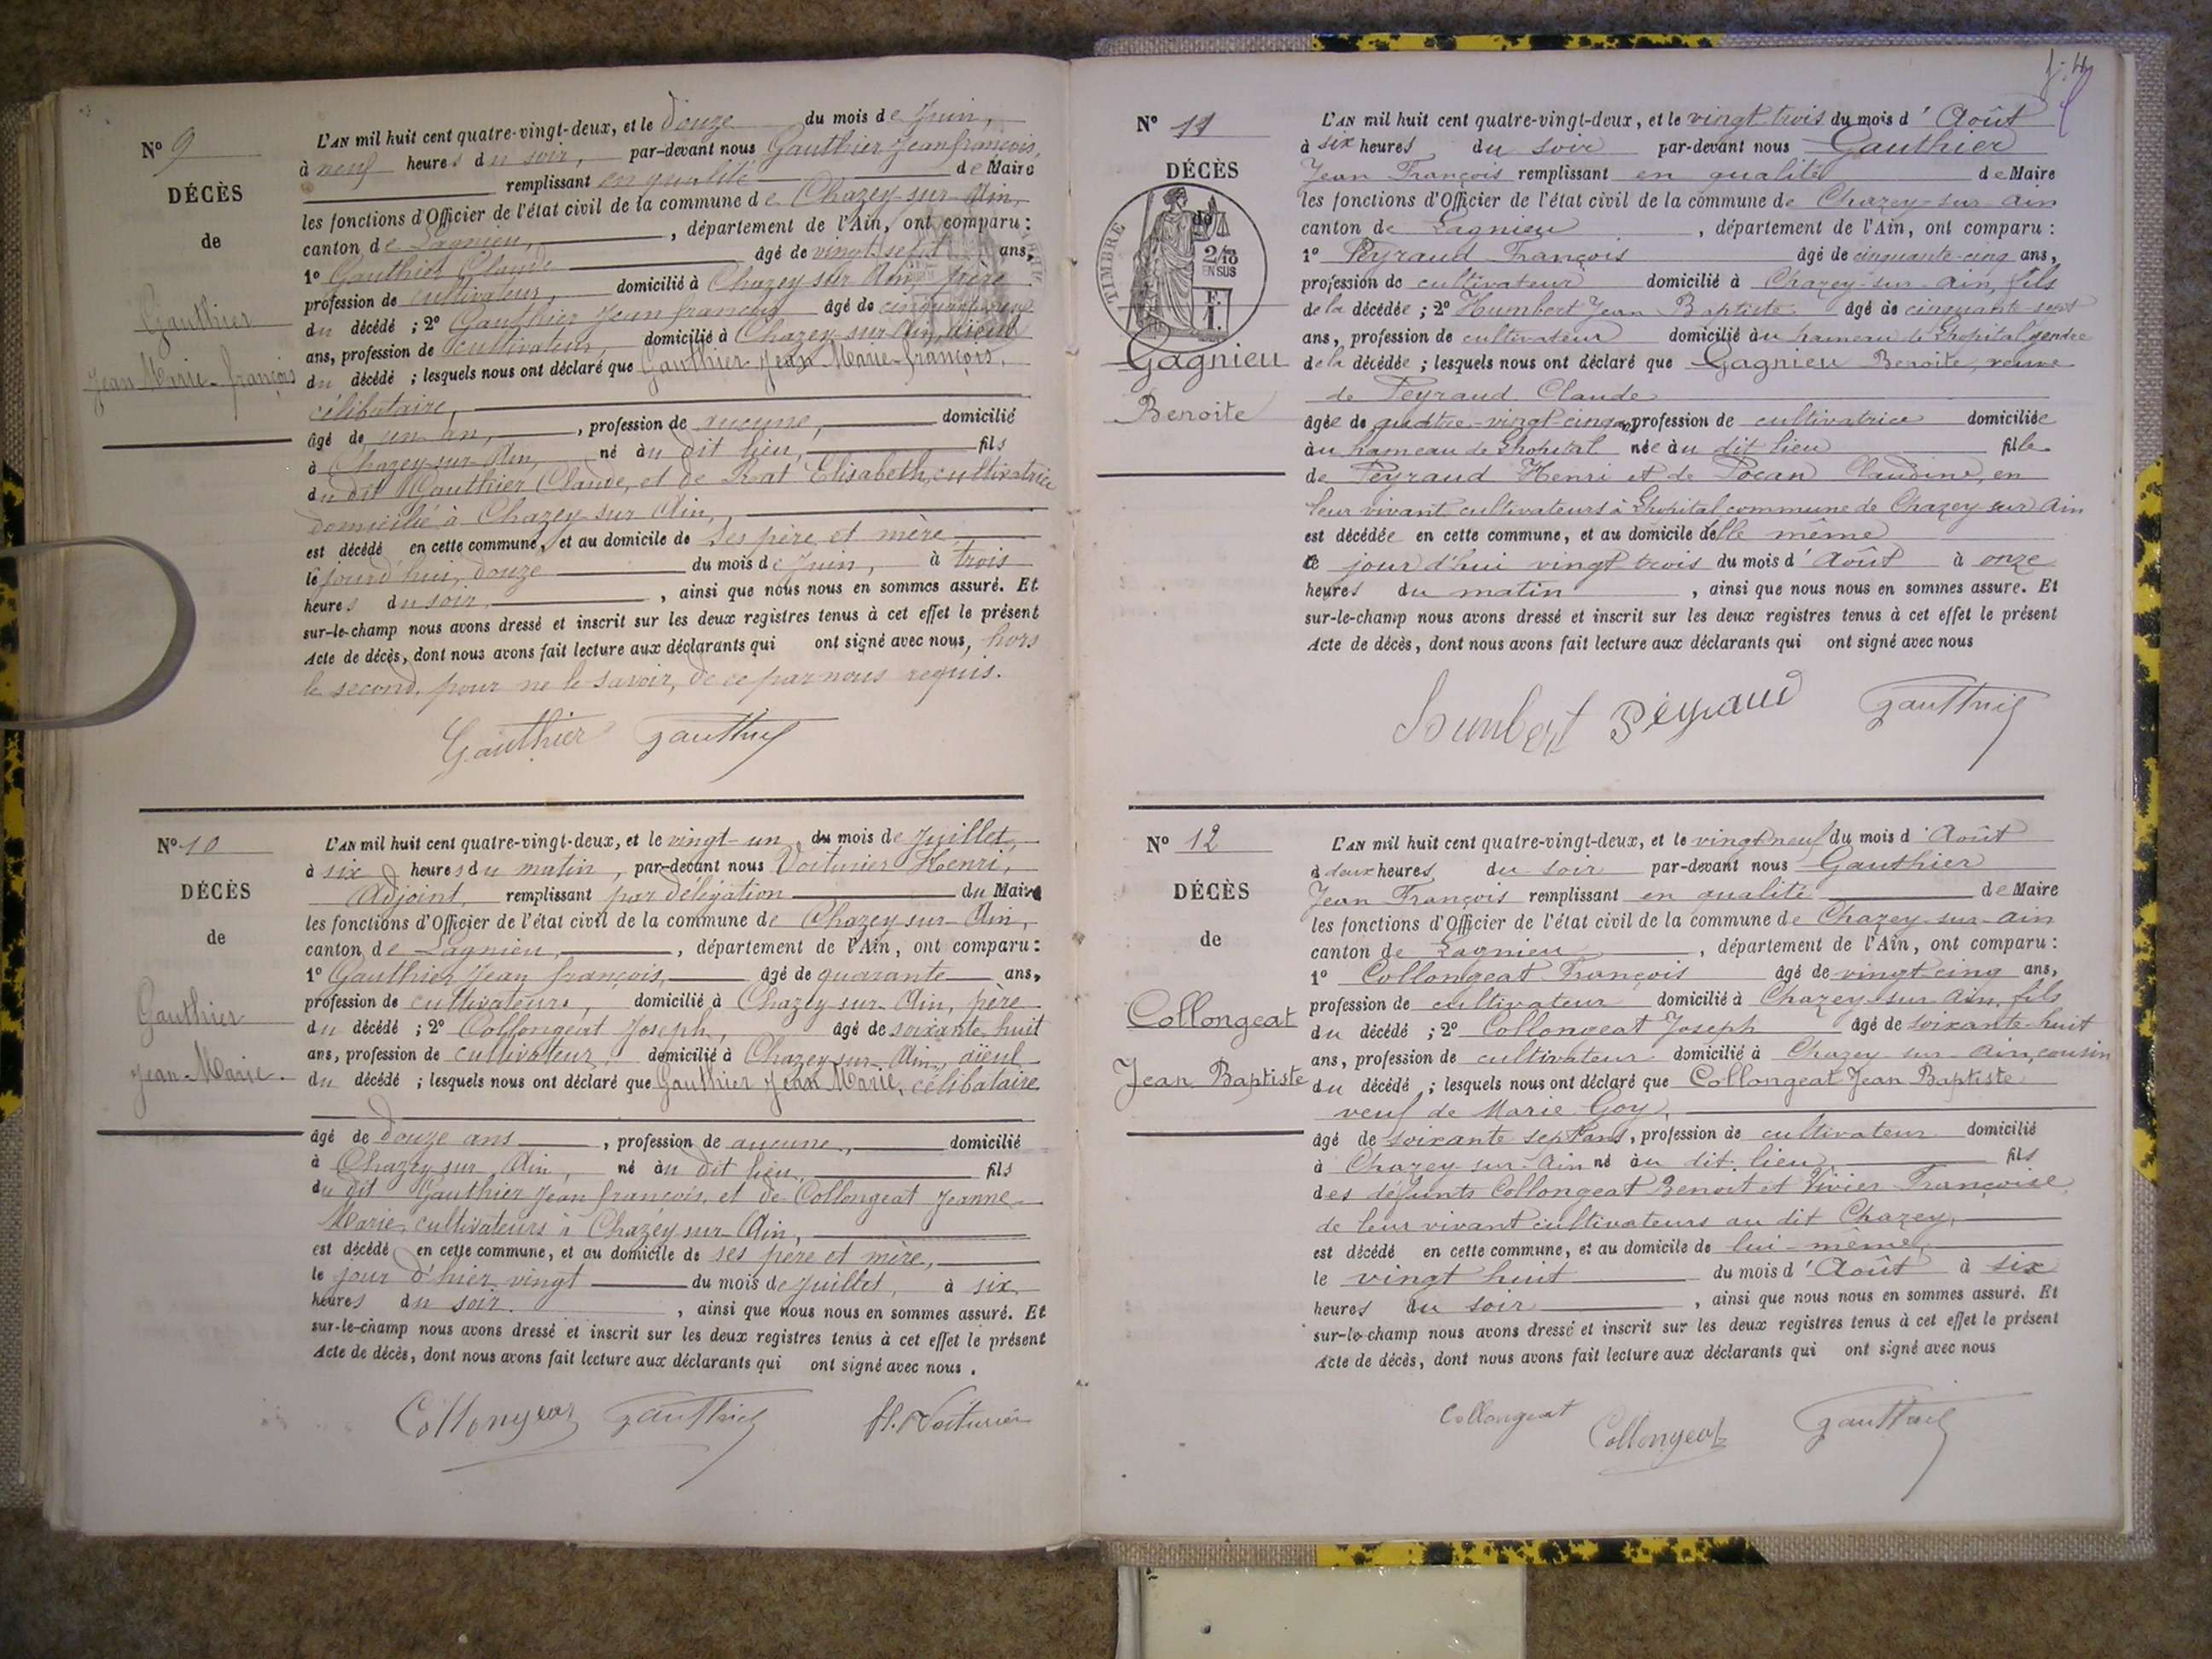 N° 9
DÉCÈS
de
Gauthier
Jean Marie-françois
L'AN mil huit cent quatre-vingt-deux, et le douze du mois de Juin,
à neuf heures du soir, par-devant nous Gauthier Jean françois,
remplissant en qualité de Maire
les fonctions d'Officier de l'état civil de la commune de Chazey-sur-Ain,
canton de Lagnieu, , département de l'Ain, ont comparu :
1° Gauthier Claude âgé de vingt sept ans,
profession de cultivateur, domicilié à Chazey sur Ain, père
du décédé ; 2° Gauthier Jean françois âgé de
ans, profession de cultivateur, domicilié à Chazey-sur-Ain, aïeul
du décédé ; lesquels nous ont déclaré que Gauthier Jean Marie-françois,
célibataire,
âgé de un an, , profession de aucune, domicilié
à Chazey-sur-Ain, né au dit lieu, fils
du dit Gauthier Claude, et de Rat Elisabeth, cultivatrice
domicilié à Chazey-sur-Ain,
est décédé en cette commune, et au domicile de ses père et mère
le jourd'hui, douze du mois de Juin, à trois
heures du soir, , ainsi que nous nous en sommes assuré. Et
sur-le-champ nous avons dressé et inscrit sur les deux registres tenus à cet effet le présent
Acte de décès, dont nous avons fait lecture aux déclarants qui ont signé avec nous, hors
le second, pour ne le savoir, de ce par nous requis.
Gauthier Gauthier
N° 10
DÉCÈS
de
Gauthier
Jean-Marie.
L'AN mil huit cent quatre-vingt-deux, et le vingt-un du mois de Juillet,
à six heures du matin, par-devant nous Voiturier Henri,
Adjoint, remplissant par délégation du Maire
les fonctions d'Officier de l'état civil de la commune de Chazey-sur-Ain,
canton de Lagnieu, , département de l'Ain, ont comparu :
1° Gauthier Jean françois, âgé de quarante ans,
profession de cultivateurs, domicilié à Chazey-sur-Ain, père
du décédé ; 2° Collongeat Joseph, âgé de soixante-huit
ans, profession de cultivateur domicilié à Chazey-sur-Ain, aïeul
du décédé ; lesquels nous ont déclaré que Gauthier Jean Marie, célibataire
âgé de douze ans , profession de aucune, domicilié
à Chazey sur Ain, né au dit lieu, fils
du dit Gauthier Jean françois, et de Collongeat Jeanne-
Marie, cultivateurs à Chazey-sur-Ain,
est décédé en cette commune, et au domicile de ses père et mère,
le jour d'hier vingt du mois de Juillet, à six
heures du soir. , ainsi que nous nous en sommes assuré. Et
sur-le-champ nous avons dressé et inscrit sur les deux registres tenus à cet effet le présent
Acte de décès, dont nous avons fait lecture aux déclarants qui ont signé avec nous .
Collongeat Gauthier H. Voiturier
N° 11
DÉCÈS
de
TIMBRE
2/10
EN SUS
Gagnieu
Benoite
L'AN mil huit cent quatre-vingt-deux, et le vingt-trois du mois d'Août
à six heures du soir par-devant nous Gauthier
Jean François remplissant en qualité de Maire
les fonctions d'Officier de l'état civil de la commune de Chazey-sur-Ain
canton de Lagnieu , département de l'Ain, ont comparu :
1° Peyraud François âgé de cinquante-cinq ans,
profession de cultivateur domicilié à Chazey-sur-Ain, fils
de la décédée ; 2° Humbert Jean Baptiste âgé de cinquante-sept
ans, profession de cultivateur domicilié au hameau de Lhopital gendre
de la décédée ; lesquels nous ont déclaré que Gagnieu Benoite, veuve
de Peyraud Claude
âgée de quatre-vingt-cinq ans, profession de cultivatrice domiciliée
au hameau de Lhopital née au dit lieu fille
de Peyraud Henri et de Pocan Claudine, en
leur vivant cultivateurs à Lhopital commune de Chazey sur Ain
est décédée en cette commune, et au domicile d'elle même
le jour d'hui vingt trois du mois d'Août à onze
heures du matin , ainsi que nous nous en sommes assuré. Et
sur-le-champ nous avons dressé et inscrit sur les deux registres tenus à cet effet le présent
Acte de décès, dont nous avons fait lecture aux déclarants qui ont signé avec nous
Humbert Peyraud Gauthier
N° 12
DÉCÈS
de
Collongeat
Jean Baptiste
L'AN mil huit cent quatre-vingt-deux, et le vingt neuf du mois d'Août
à deux heures du soir par-devant nous Gauthier
Jean François remplissant en qualité de Maire
les fonctions d'Officier de l'état civil de la commune de Chazey-sur-Ain
canton de Lagnieu , département de l'Ain, ont comparu :
1° Collongeat François âgé de vingt cinq ans,
profession de cultivateur domicilié à Chazey-sur-Ain, fils
du décédé ; 2° Collongeat Joseph âgé de soixante-huit
ans, profession de cultivateur domicilié à Chazey-sur-Ain, cousin
du décédé ; lesquels nous ont déclaré que Collongeat Jean Baptiste
veuf de Marie Goy,
âgé de soixante sept ans, profession de cultivateur domicilié
à Chazey-sur-Ain né au dit lieu fils
des défunts Collongeat Benoit et Vivier Françoise
de leur vivant cultivateurs au dit Chazey,
est décédé en cette commune, et au domicile de lui-même,
le vingt huit du mois d'Août à six
heures du soir , ainsi que nous nous en sommes assuré. Et
sur-le-champ nous avons dressé et inscrit sur les deux registres tenus à cet effet le présent
Acte de décès, dont nous avons fait lecture aux déclarants qui ont signé avec nous
Collongeat Collongeat Gauthier